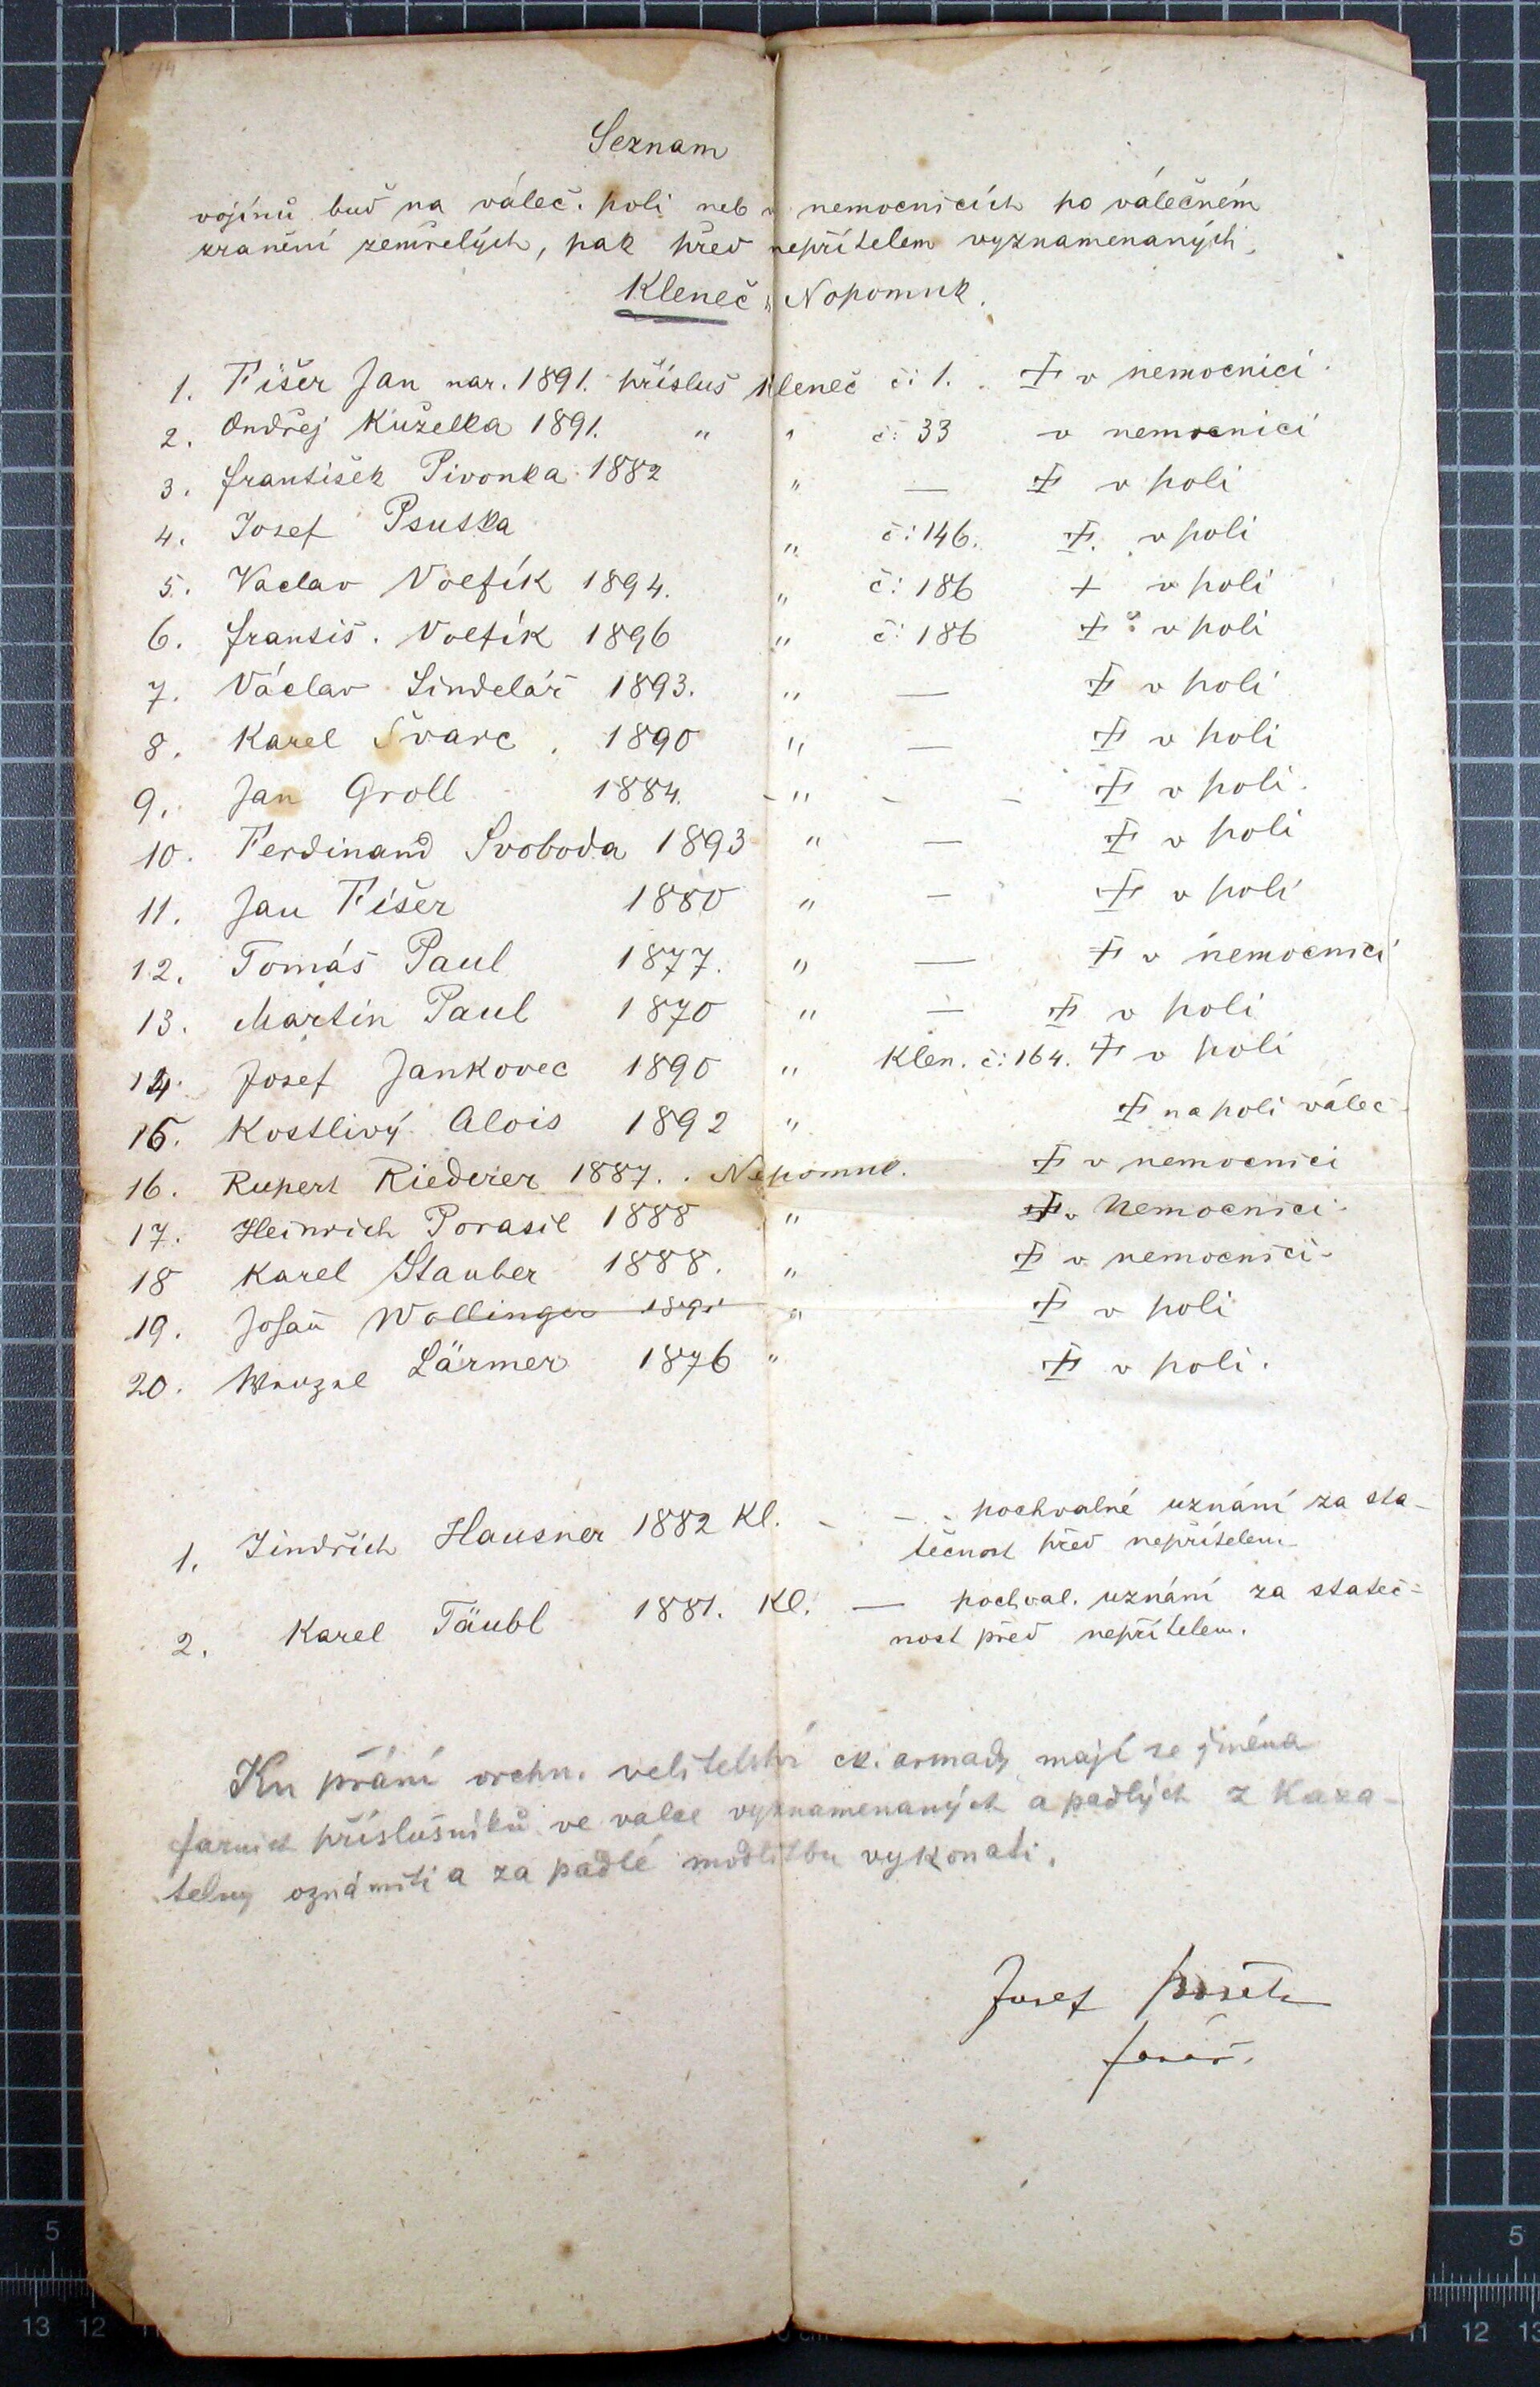 44
Seznam
vojínů buď na váleč. poli neb v nemocnicích po válečném
zranění zemřelých, pak před nepřítelem vyznamenaných.
Kleneč, Nepomuk.
1. Fišer Jan nar. 1891. přísluš Kleneč č: 1. ✝ v nemocnici
2. Ondřej Kuželka 1891. " " č: 33 v nemocnici
3. František Pivonka 1882 " — ✝ v poli
4. Josef Psutka " č: 146. ✝. v poli
5. Vaclav Volfík 1894. " č: 186 + v poli
6. Františ. Volfík 1896 " č: 186 ✝ v poli
7. Václav Šindelář 1893. " — ✝ v poli
8. Karel Švarc. 1890 " — ✝ v poli
9. Jan Groll 1884. - " - - ✝ v poli.
10. Ferdinand Svoboda 1893 " — ✝ v poli
11. Jan Fišer 1880 " — ✝ v poli
12. Tomáš Paul 1877. " — ✝ v nemocnici
13. Martin Paul 1870 " — ✝ v poli
14. Josef Jankovec 1890 " Klen. č: 164. ✝ v poli
15. Kostlivý Alois 1892 " ✝ na poli váleč.
16. Rupert Riederer 1887. . Nepomuk. ✝ v nemocnici
17. Heinrich Porasil 1888 " ✝ v Nemocnici.
18 Karel Stauber 1888. " ✝ v nemocnici-
19. Johann Wollinger 1891 " ✝ v poli
20. Wenzel Lärmer 1876 " ✝ v poli.
1. Jindřich Hausner 1882 Kl. - - . pochvalné uznání za sta-
tečnost před nepřítelem
2. Karel Täubl 1881. Kl. — pochval. uznání za stateč-
nost před nepřítelem.
Ku přání vrchn. velitelství ck. armady mají se jména
farních příslušníků ve valce vyznamenaných a padlých z Kaza-
telny oznámiti a za padlé modlitbu vykonati.
Josef
farář.
5
5
13 12
11 12 13